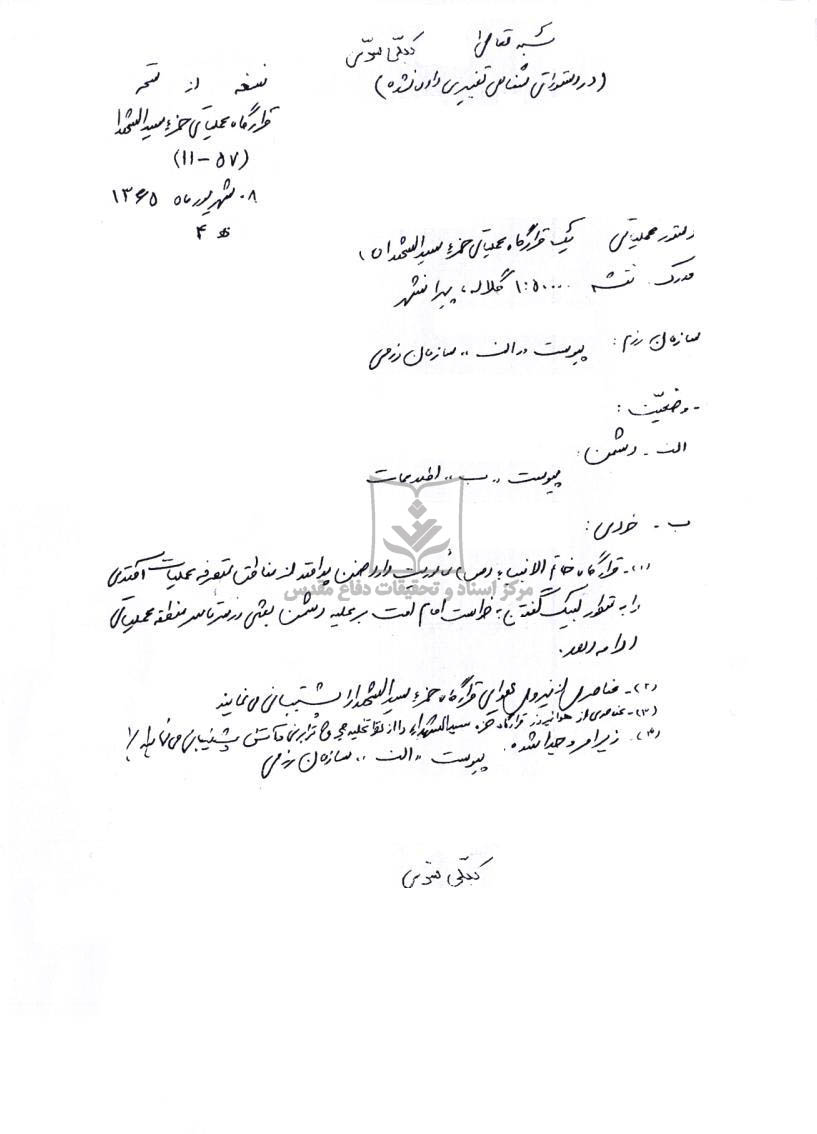 بسمه تعالی
بکلی سری
(در دستورات شفاهی تغییری داده نشده)
نسخه از نسخه
قرارگاه عملیاتی حمزه سیدالشهدا
(۵۷-۱۱)
۰۸ شهریور ماه ۱۳۶۵
۴
دستور عملیاتی یک قرارگاه عملیاتی حمزه سیدالشهداء
مدرک: نقشه ۱:۵۰۰۰۰ گلاله، پیرانشهر
سازمان رزم: پیوست «الف» سازمان رزمی
- وضعیت:
الف - دشمن:
پیوست «ب» اطلاعات
ب - خودی:
(۱)- قرارگاه خاتم الانبیاء (ص) مأموریت دارد ضمن پدافند از مناطق متصرفه عملیات آفندی
را به منظور لبیک گفتن به خواست امام امت بر علیه دشمن بعثی در سرتاسر منطقه عملیاتی
ادامه دهد.
(۲)- عناصری از نیروی هوایی قرارگاه حمزه سیدالشهدا را پشتیبانی می نمایند
(۳)- عناصری از هوانیروز قرارگاه حمزه سیدالشهداء را از نظر تخلیه مجروح ترابری و آتش پشتیبانی می نماید
(۴). زیر امر و جدا شده: پیوست «الف» سازمان رزمی
مرکز اسناد و تحقیقات دفاع مقدس
بکلی سری